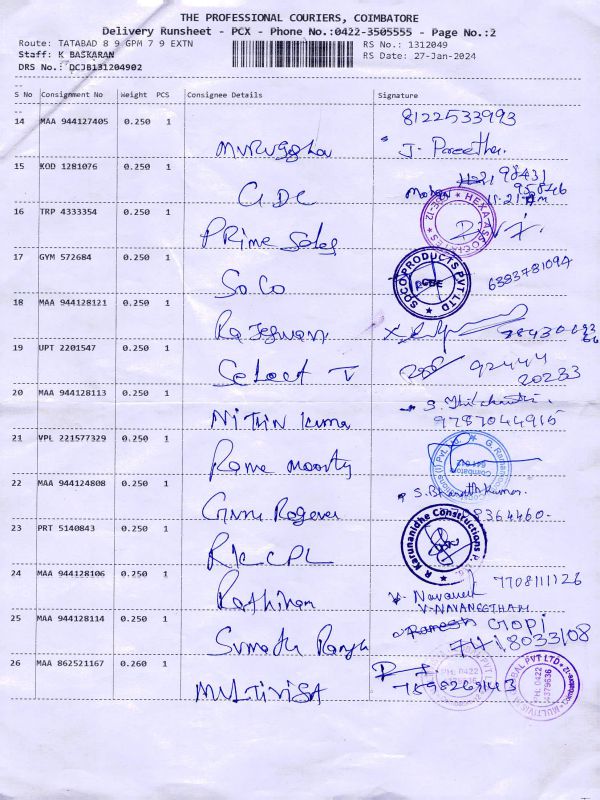 THE PROFESSIONAL COURIERS, COIMBATORE
Delivery Runsheet - PCX - Phone No.:0422-3505555 - Page No.:2
Route: TATABAD 8 9 GPM 7 9 EXTN RS No.: 1312049
Staff: K BASKARAN RS Date: 27-Jan-2024
DRS No.: DCJB131204902
S No Consignment No Weight PCS Consignee Details Signature
14 MAA 944127405 0.250 1 8122533993
J. Preetha.
15 KOD 1281076 0.250 1 98431
GDC Mohan 95846
11.21 Am
16 TRP 4333354 0.250 1 HEXATASSOCIATES
Prime Sales
17 GYM 572684 0.250 1 SOCO PRODUCTS PVT LTD 6383781094
SoCo
18 MAA 944128121 0.250 1
Rajeswari
19 UPT 2201547 0.250 1 92444
Select V 20283
20 MAA 944128113 0.250 1
Nithin Kumar 9787044915
21 VPL 221577329 0.250 1
Rama moorthy
22 MAA 944124808 0.250 1 S. Bharath Kumar
8364460-
23 PRT 5140843 0.250 1 R Karunanidhe Constructions P. Ltd
RKCCPL
24 MAA 944128106 0.250 1 7708111126
V. Navaneeth
V.NAVANEETHAN
25 MAA 944128114 0.250 1 Ramesh GOPI
7418033108
26 MAA 862521167 0.260 1
MULTIVISA 7598269143